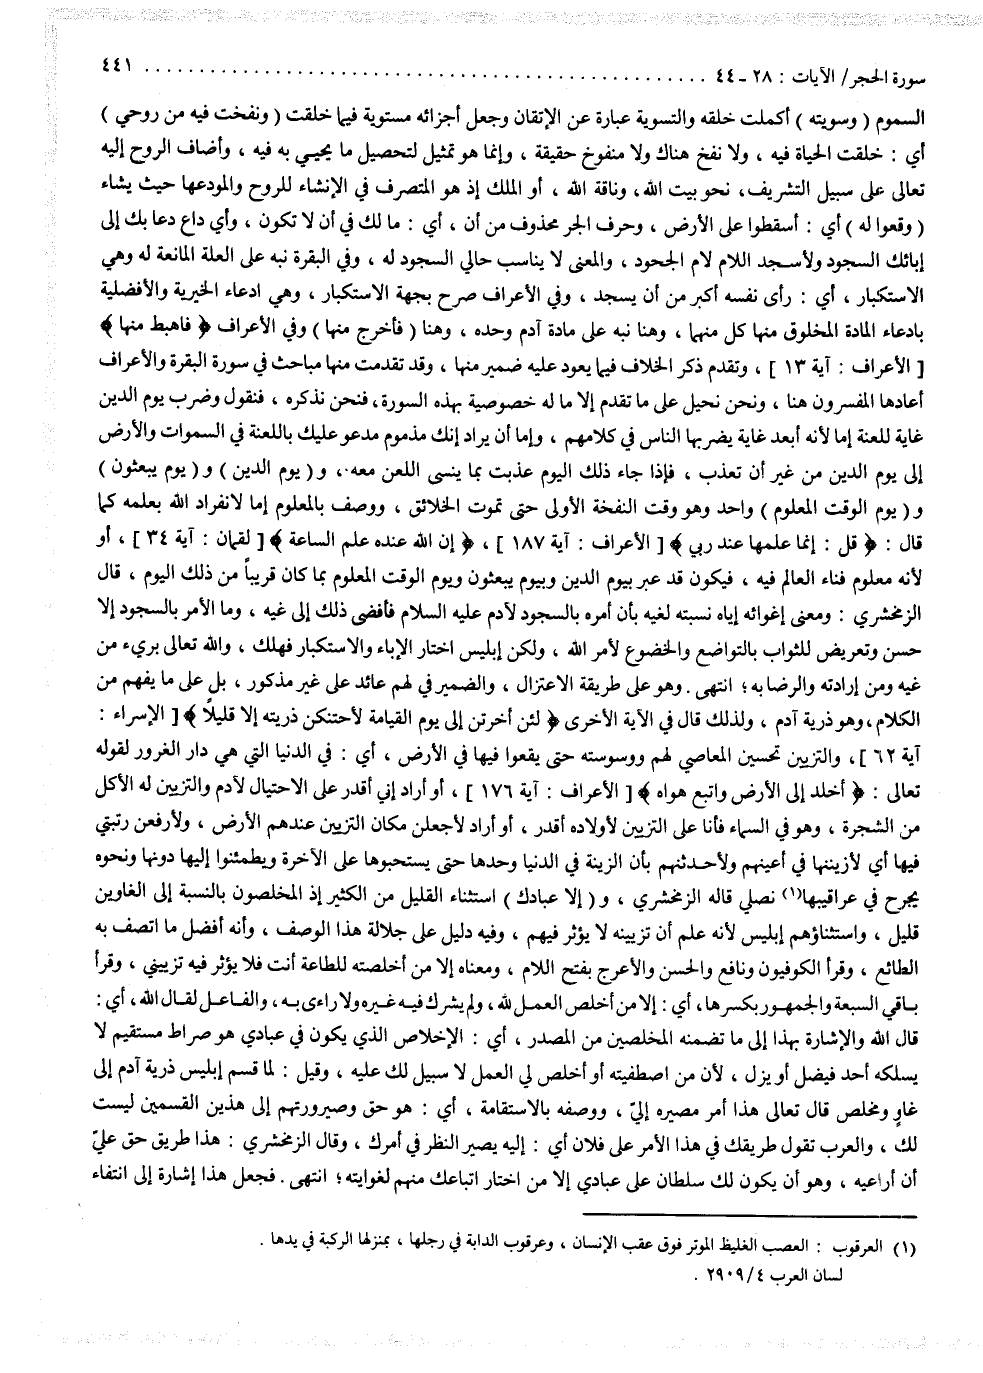 سورة الحجر/ الآيات : ٢٨ - ٤٤ .......................................................... ٤٤١
السموم ( وسويته ) أكملت خلقه والتسوية عبارة عن الإتقان وجعل أجزائه مستوية فيما خلقت ( ونفخت فيه من روحي )
أي : خلقت الحياة فيه ، ولا نفخ هناك ولا منفوخ حقيقة ، وإنما هو تمثيل لتحصيل ما يحيي به فيه ، وأضاف الروح إليه
تعالى على سبيل التشريف، نحو بيت الله، وناقة الله ، أو الملك إذ هو المتصرف في الإنشاء للروح والمودعها حيث يشاء
( وقعوا له ) أي : أسقطوا على الأرض ، وحرف الجر محذوف من أن ، أي : ما لك في أن لا تكون ، وأي داع دعا بك إلى
إبائك السجود ولأسجد اللام لام الجحود ، والمعنى لا يناسب حالي السجود له ، وفي البقرة نبه على العلة المانعة له وهي
الاستكبار ، أي : رأى نفسه أكبر من أن يسجد ، وفي الأعراف صرح بجهة الاستكبار ، وهي ادعاء الخيرية والأفضلية
بادعاء المادة المخلوق منها كل منهما ، وهنا نبه على مادة آدم وحده ، وهنا ( فأخرج منها ) وفي الأعراف ﴿ فاهبط منها ﴾
[ الأعراف : آية ١٣ ] ، وتقدم ذكر الخلاف فيما يعود عليه ضمير منها ، وقد تقدمت منها مباحث في سورة البقرة والأعراف
أعادها المفسرون هنا ، ونحن نحيل على ما تقدم إلا ما له خصوصية بهذه السورة، فنحن نذكره ، فنقول وضرب يوم الدين
غاية للعنة إما لأنه أبعد غاية يضربها الناس في كلامهم ، وإما أن يراد إنك مذموم مدعو عليك باللعنة في السموات والأرض
إلى يوم الدين من غير أن تعذب ، فإذا جاء ذلك اليوم عذبت بما ينسى اللعن معه، و ( يوم الدين ) و ( يوم يبعثون )
و ( يوم الوقت المعلوم ) واحد وهو وقت النفخة الأولى حتى تموت الخلائق ، ووصف بالمعلوم إما لانفراد الله بعلمه كما
قال : ﴿ قل : إنما علمها عند ربي ﴾ [ الأعراف : آية ١٨٧ ] ، ﴿ إن الله عنده علم الساعة ﴾ [ لقمان : آية ٣٤ ] ، أو
لأنه معلوم فناء العالم فيه ، فيكون قد عبر بيوم الدين وبيوم يبعثون ويوم الوقت المعلوم بما كان قريباً من ذلك اليوم ، قال
الزمخشري : ومعنى إغوائه إياه نسبته لغيه بأن أمره بالسجود لآدم عليه السلام فأفضى ذلك إلى غيه ، وما الأمر بالسجود إلا
حسن وتعريض للثواب بالتواضع والخضوع لأمر الله ، ولكن إبليس اختار الإباء والاستكبار فهلك ، والله تعالى بريء من
غيه ومن إرادته والرضا به؛ انتهى . وهو على طريقة الاعتزال ، والضمير في لهم عائد على غير مذكور ، بل على ما يفهم من
الكلام، وهو ذرية آدم ، ولذلك قال في الآية الأخرى ﴿ لئن أخرتن إلى يوم القيامة لأحتنكن ذريته إلا قليلًا ﴾ [ الإسراء :
آية ٦٢ ]، والتزيين تحسين المعاصي لهم ووسوسته حتى يقعوا فيها في الأرض ، أي : في الدنيا التي هي دار الغرور لقوله
تعالى : ﴿ أخلد إلى الأرض واتبع هواه ﴾ [ الأعراف : آية ١٧٦ ] ، أو أراد إني أقدر على الاحتيال لآدم والتزيين له الأكل
من الشجرة ، وهو في السماء فأنا على التزيين لأولاده أقدر ، أو أراد لأجعلن مكان التزيين عندهم الأرض ، ولأرفعن رتبتي
فيها أي لأزيننها في أعينهم ولأحدثنهم بأن الزينة في الدنيا وحدها حتى يستحبوها على الآخرة ويطمئنوا إليها دونها ونحوه
يجرح في عراقيبها(١) نصلي قاله الزمخشري ، و ( إلا عبادك ) استثناء القليل من الكثير إذ المخلصون بالنسبة إلى الغاوين
قليل ، واستثناؤهم إبليس لأنه علم أن تزيينه لا يؤثر فيهم ، وفيه دليل على جلالة هذا الوصف ، وأنه أفضل ما اتصف به
الطائع ، وقرأ الكوفيون ونافع والحسن والأعرج بفتح اللام ، ومعناه إلا من أخلصته للطاعة أنت فلا يؤثر فيه تزييني ، وقرأ
باقي السبعة والجمهور بكسرها، أي : إلا من أخلص العمل لله، ولم يشرك فيه غيره ولا راءى به، والفاعل لقال الله، أي :
قال الله والإشارة بهذا إلى ما تضمنه المخلصين من المصدر ، أي : الإخلاص الذي يكون في عبادي هو صراط مستقيم لا
يسلكه أحد فيضل أو يزل ، لأن من اصطفيته أو أخلص لي العمل لا سبيل لك عليه ، وقيل : لما قسم إبليس ذرية آدم إلى
غاوٍ ومخلص قال تعالى هذا أمر مصيره إليّ ، ووصفه بالاستقامة ، أي : هو حق وصيرورتهم إلى هذين القسمين ليست
لك ، والعرب تقول طريقك في هذا الأمر على فلان أي : إليه يصير النظر في أمرك ، وقال الزمخشري : هذا طريق حق عليّ
أن أراعيه ، وهو أن يكون لك سلطان على عبادي إلا من اختار اتباعك منهم لغوايته؛ انتهى . فجعل هذا إشارة إلى انتفاء
(١) العرقوب : العصب الغليظ الموتر فوق عقب الإنسان ، وعرقوب الدابة في رجلها ، بمنزلها الركبة في يدها .
لسان العرب ٢٩٠٩/٤ .